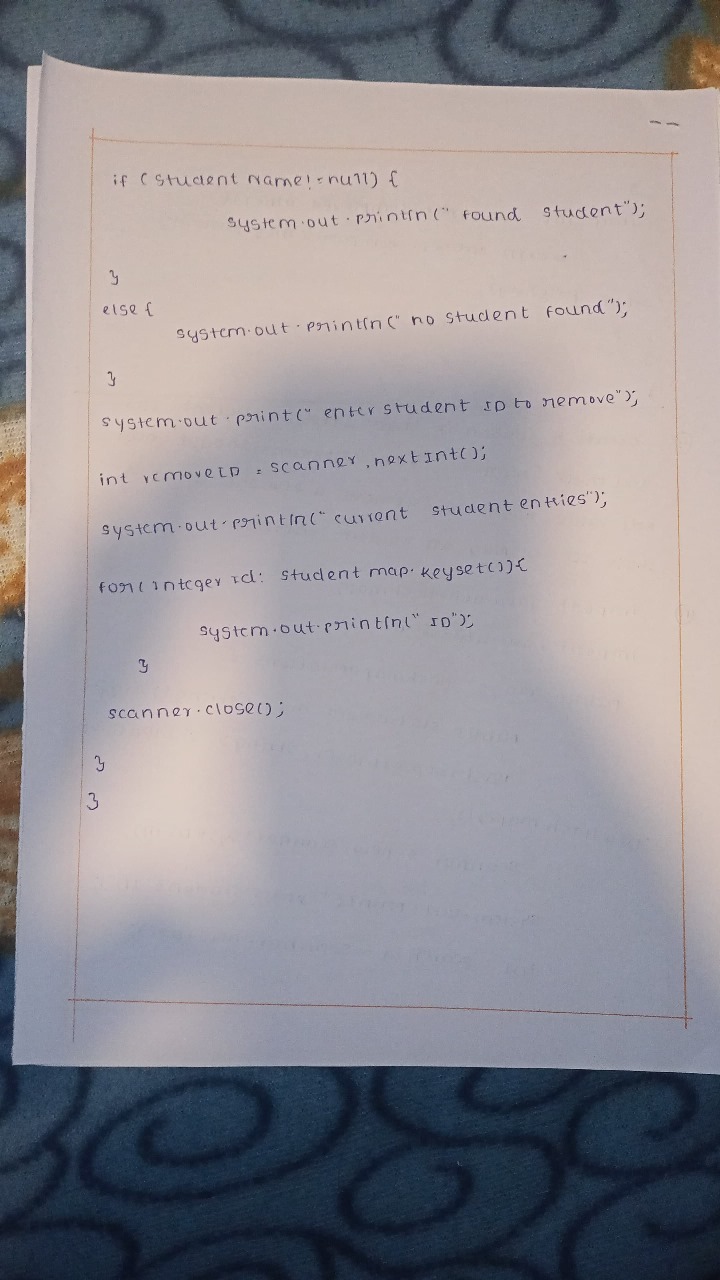 if (student Name! = null) {
system.out.println(" found student");
}
else {
system.out.println(" no student found");
}
system.out.print(" enter student ID to remove");
int removeID = scanner.nextInt();
system.out.println(" current student entries");
for(integer id: student map.keyset()){
system.out.println(" ID");
}
scanner.close();
}
}